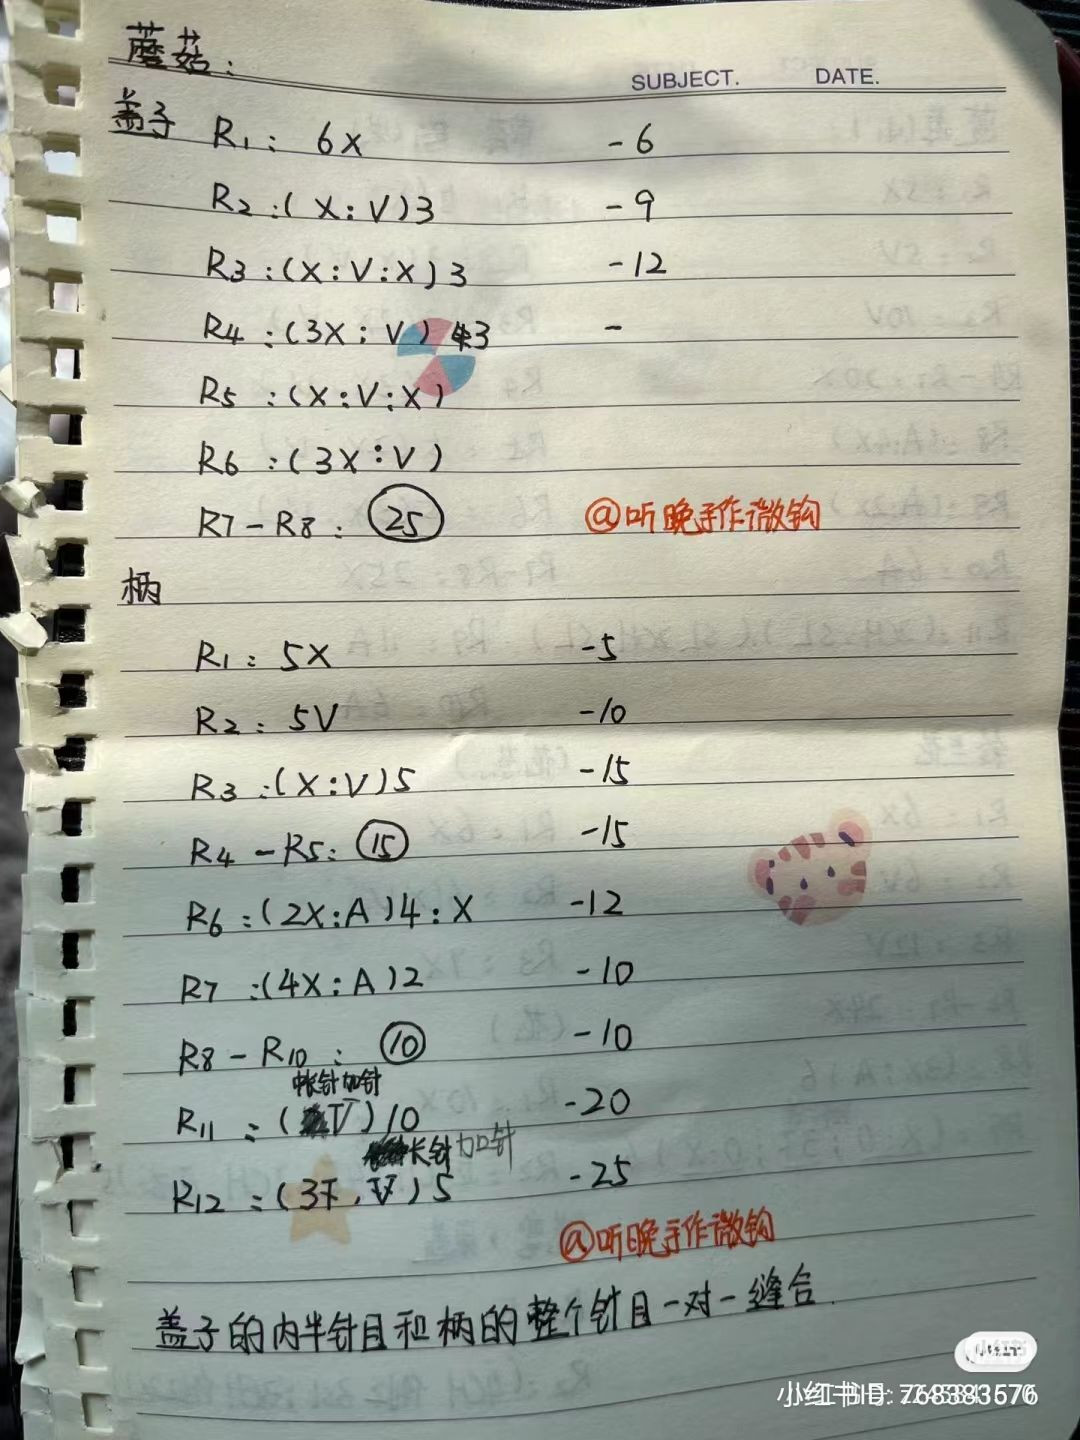 蘑菇:
SUBJECT. DATE.
盖子 R1: 6X -6
R2:(X:V)3 -9
R3:(X:V:X)3 -12
R4:(3X:V) 3 -
R5:(X:V:X)
R6:(3X:V)
R7-R8: 25
@听晚手作微钩
柄
R1: 5X -5
R2: 5V -10
R3:(X:V)5 -15
R4-R5: 15 -15
R6:(2X:A)4:X -12
R7:(4X:A)2 -10
R8-R10: 10 -10
中长针加针
R11:( V)10 -20
长针加针
R12:(3 , )5 -25
@听晚手作微钩
盖子的内半针目和柄的整个针目一对一缝合.
小红书
小红书ID: